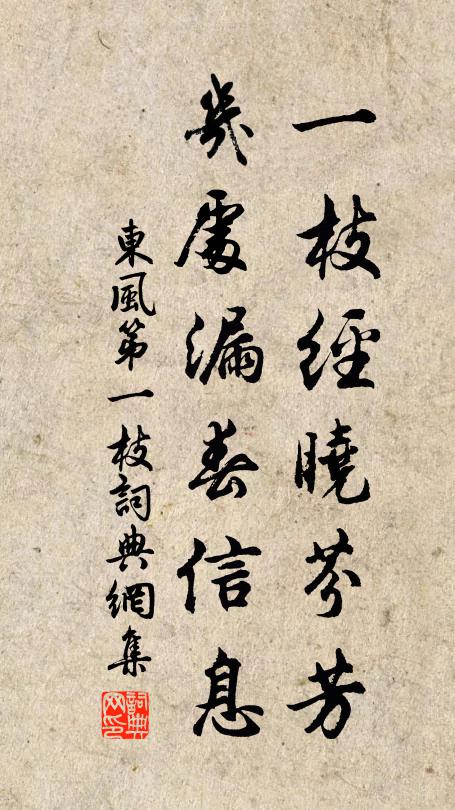 一枝經曉芬芳
幾處漏春信息
東風第一枝詞典網集
詞典网印